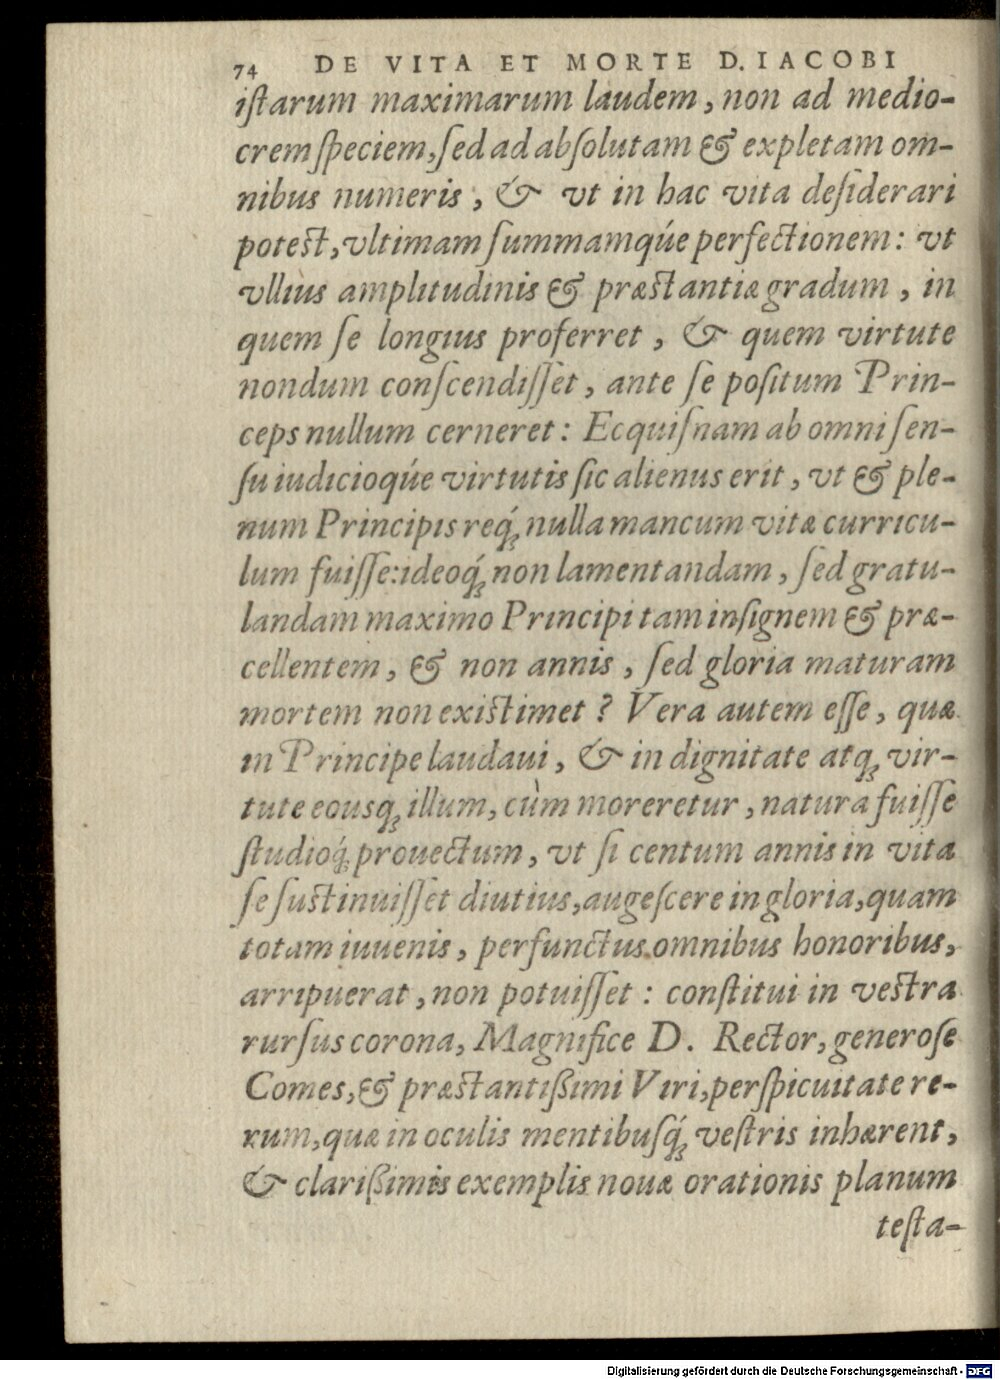 74 DE VITA ET MORTE D. IACOBI
iſtarum maximarum laudem, non ad medio-
crem ſpeciem, ſed ad abſolutam & expletam om-
nibus numeris, & vt in hac vita deſiderari
poteſt, vltimam ſummamq́ue perfectionem: vt
vllius amplitudinis & præſtantiæ gradum, in
quem ſe longius proferret, & quem virtute
nondum conſcendiſſet, ante ſe poſitum Prin-
ceps nullum cerneret: Ecquiſnam ab omni ſen-
ſu iudicioq́ue virtutis ſic alienus erit, vt & ple-
num Principis req́; nulla mancum vitæ curricu-
lum fuiſſe: ideoq́; non lamentandam, ſed gratu-
landam maximo Principi tam inſignem & præ-
cellentem, & non annis, ſed gloria maturam
mortem non exiſtimet? Vera autem eſſe, quæ
in Principe laudaui, & in dignitate atq; vir-
tute eousq; illum, cùm moreretur, natura fuiſſe
ſtudioq́; prouectum, vt ſi centum annis in vita
ſe ſuſtinuiſſet diutius, augeſcere in gloria, quam
totam iuuenis, perfunctus omnibus honoribus,
arripuerat, non potuiſſet: conſtitui in veſtra
rurſus corona, Magnifice D. Rector, generoſe
Comes, & præſtantißimi Viri, perſpicuitate re-
rum, quæ in oculis mentibuſq́; veſtris inhærent,
& clarißimis exemplis nouæ orationis planum
teſta-
Digitalisierung gefördert durch die Deutsche Forschungsgemeinschaft - DFG